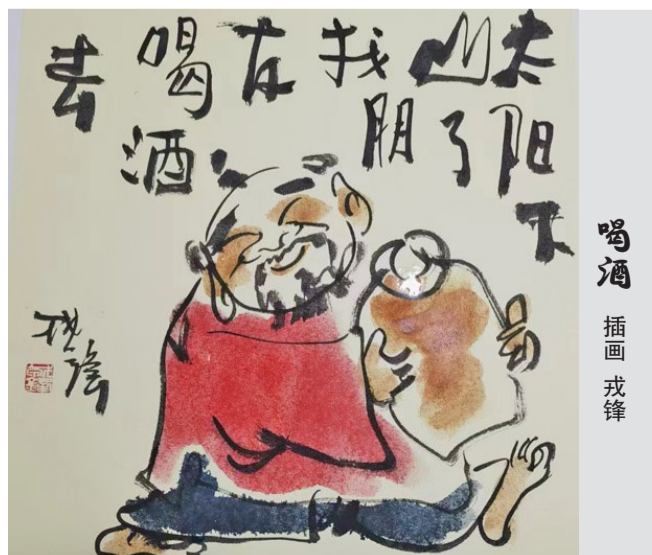 太阳下
山了
找朋
友
喝酒
去
戎锋
喝酒
插画 戎锋